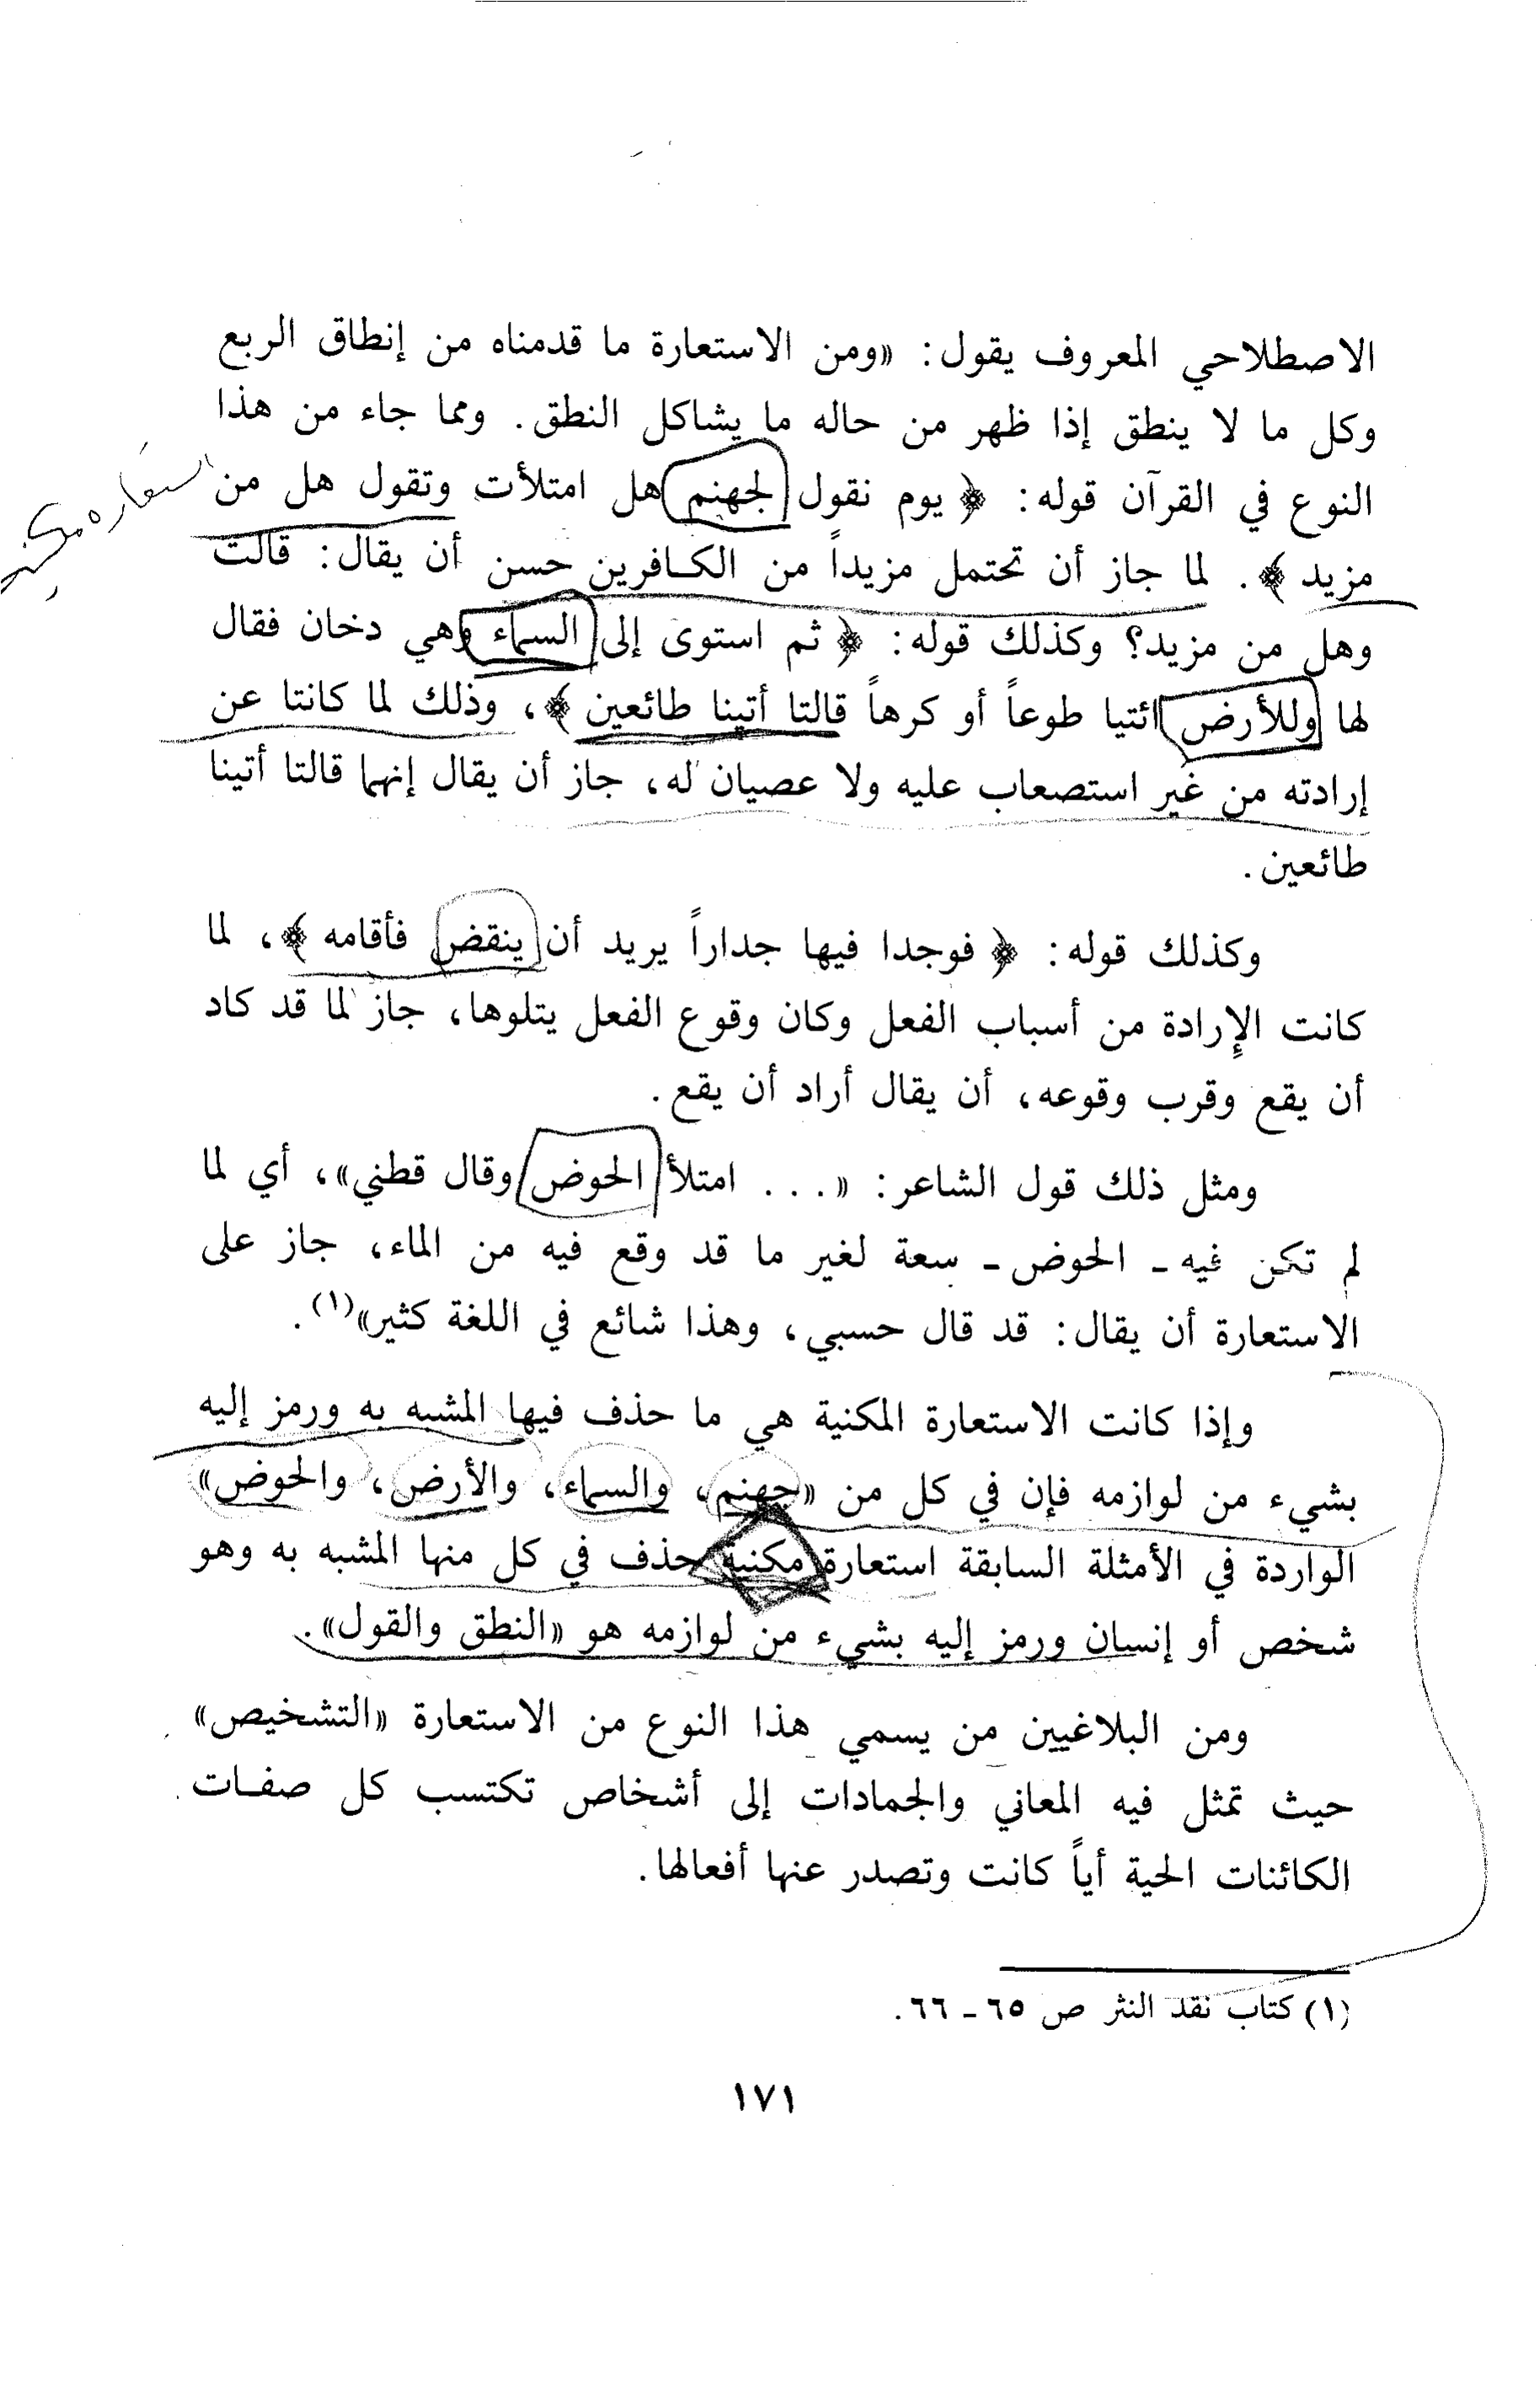 الاصطلاحي المعروف يقول: «ومن الاستعارة ما قدمناه من إنطاق الربع
وكل ما لا ينطق إذا ظهر من حاله ما يشاكل النطق. ومما جاء من هذا
النوع في القرآن قوله: ﴿ يوم نقول لجهنم هل امتلأت وتقول هل من
استعاره مكنية
مزيد ﴾. لما جاز أن تحتمل مزيداً من الكافرين حسن أن يقال: قالت
وهل من مزيد؟ وكذلك قوله: ﴿ ثم استوى إلى السماء وهي دخان فقال
لها وللأرض ائتيا طوعاً أو كرهاً قالتا أتينا طائعين ﴾، وذلك لما كانتا عن
إرادته من غير استصعاب عليه ولا عصيان له، جاز أن يقال إنهما قالتا أتينا
طائعين.
وكذلك قوله: ﴿ فوجدا فيها جداراً يريد أن ينقض فأقامه ﴾، لما
كانت الإرادة من أسباب الفعل وكان وقوع الفعل يتلوها، جاز لما قد كاد
أن يقع وقرب وقوعه، أن يقال أراد أن يقع.
ومثل ذلك قول الشاعر: «... امتلأ الحوض وقال قطني»، أي لما
لم تكن فيه - الحوض - سعة لغير ما قد وقع فيه من الماء، جاز على
الاستعارة أن يقال: قد قال حسبي، وهذا شائع في اللغة كثير»(١).
وإذا كانت الاستعارة المكنية هي ما حذف فيها المشبه به ورمز إليه
بشيء من لوازمه فإن في كل من «جهنم، والسماء، والأرض، والحوض»
الواردة في الأمثلة السابقة استعارة مكنية حذف في كل منها المشبه به وهو
شخص أو إنسان ورمز إليه بشيء من لوازمه هو «النطق والقول».
ومن البلاغيين من يسمي هذا النوع من الاستعارة «التشخيص»
حيث تمثل فيه المعاني والجمادات إلى أشخاص تكتسب كل صفات
الكائنات الحية أياً كانت وتصدر عنها أفعالها.
(١) كتاب نقد النثر ص ٦٥ - ٦٦.
١٧١